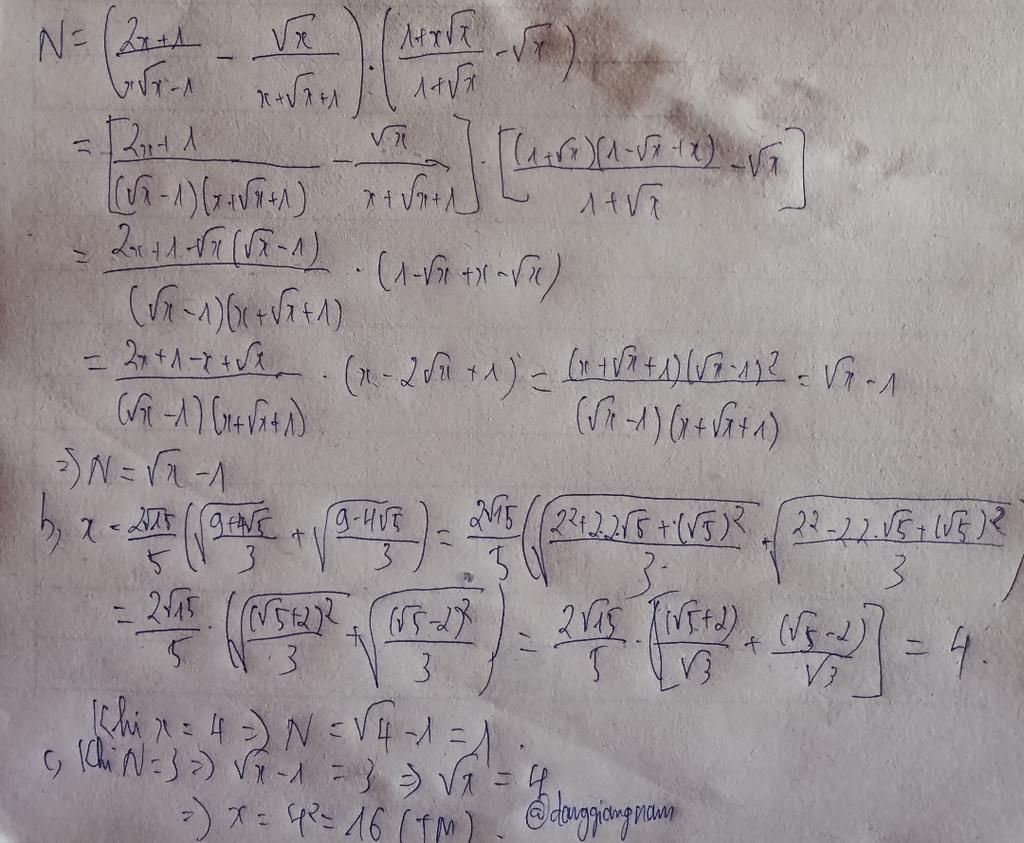 N = ( (2x+1)/(x√x-1) - √x/(x+√x+1) ) . ( (1+x√x)/(1+√x) - √x )
= [ (2x+1)/((√x-1)(x+√x+1)) - √x/(x+√x+1) ] . [ ((1+√x)(1-√x+x))/(1+√x) - √x ]
= (2x+1-√x(√x-1))/((√x-1)(x+√x+1)) . (1-√x+x-√x)
= (2x+1-x+√x)/((√x-1)(x+√x+1)) . (x-2√x+1) = ((x+√x+1)(√x-1)²)/((√x-1)(x+√x+1)) = √x-1
=> N = √x-1
b, x = 2√15/5 ( √((9+4√5)/3) + √((9-4√5)/3) ) = 2√15/5 ( √((2²+2.2√5+(√5)²)/3) + √((2²-2.2.√5+(√5)²)/3) )
= 2√15/5 . ( √((√5+2)²/3) + √((√5-2)²/3) ) = 2√15/5 . [ (√5+2)/√3 + (√5-2)/√3 ] = 4.
Khi x = 4 => N = √4-1 = 1.
c, Khi N=3 => √x-1 = 3 => √x = 4
=> x = 4² = 16 (TM). @danggiangnam